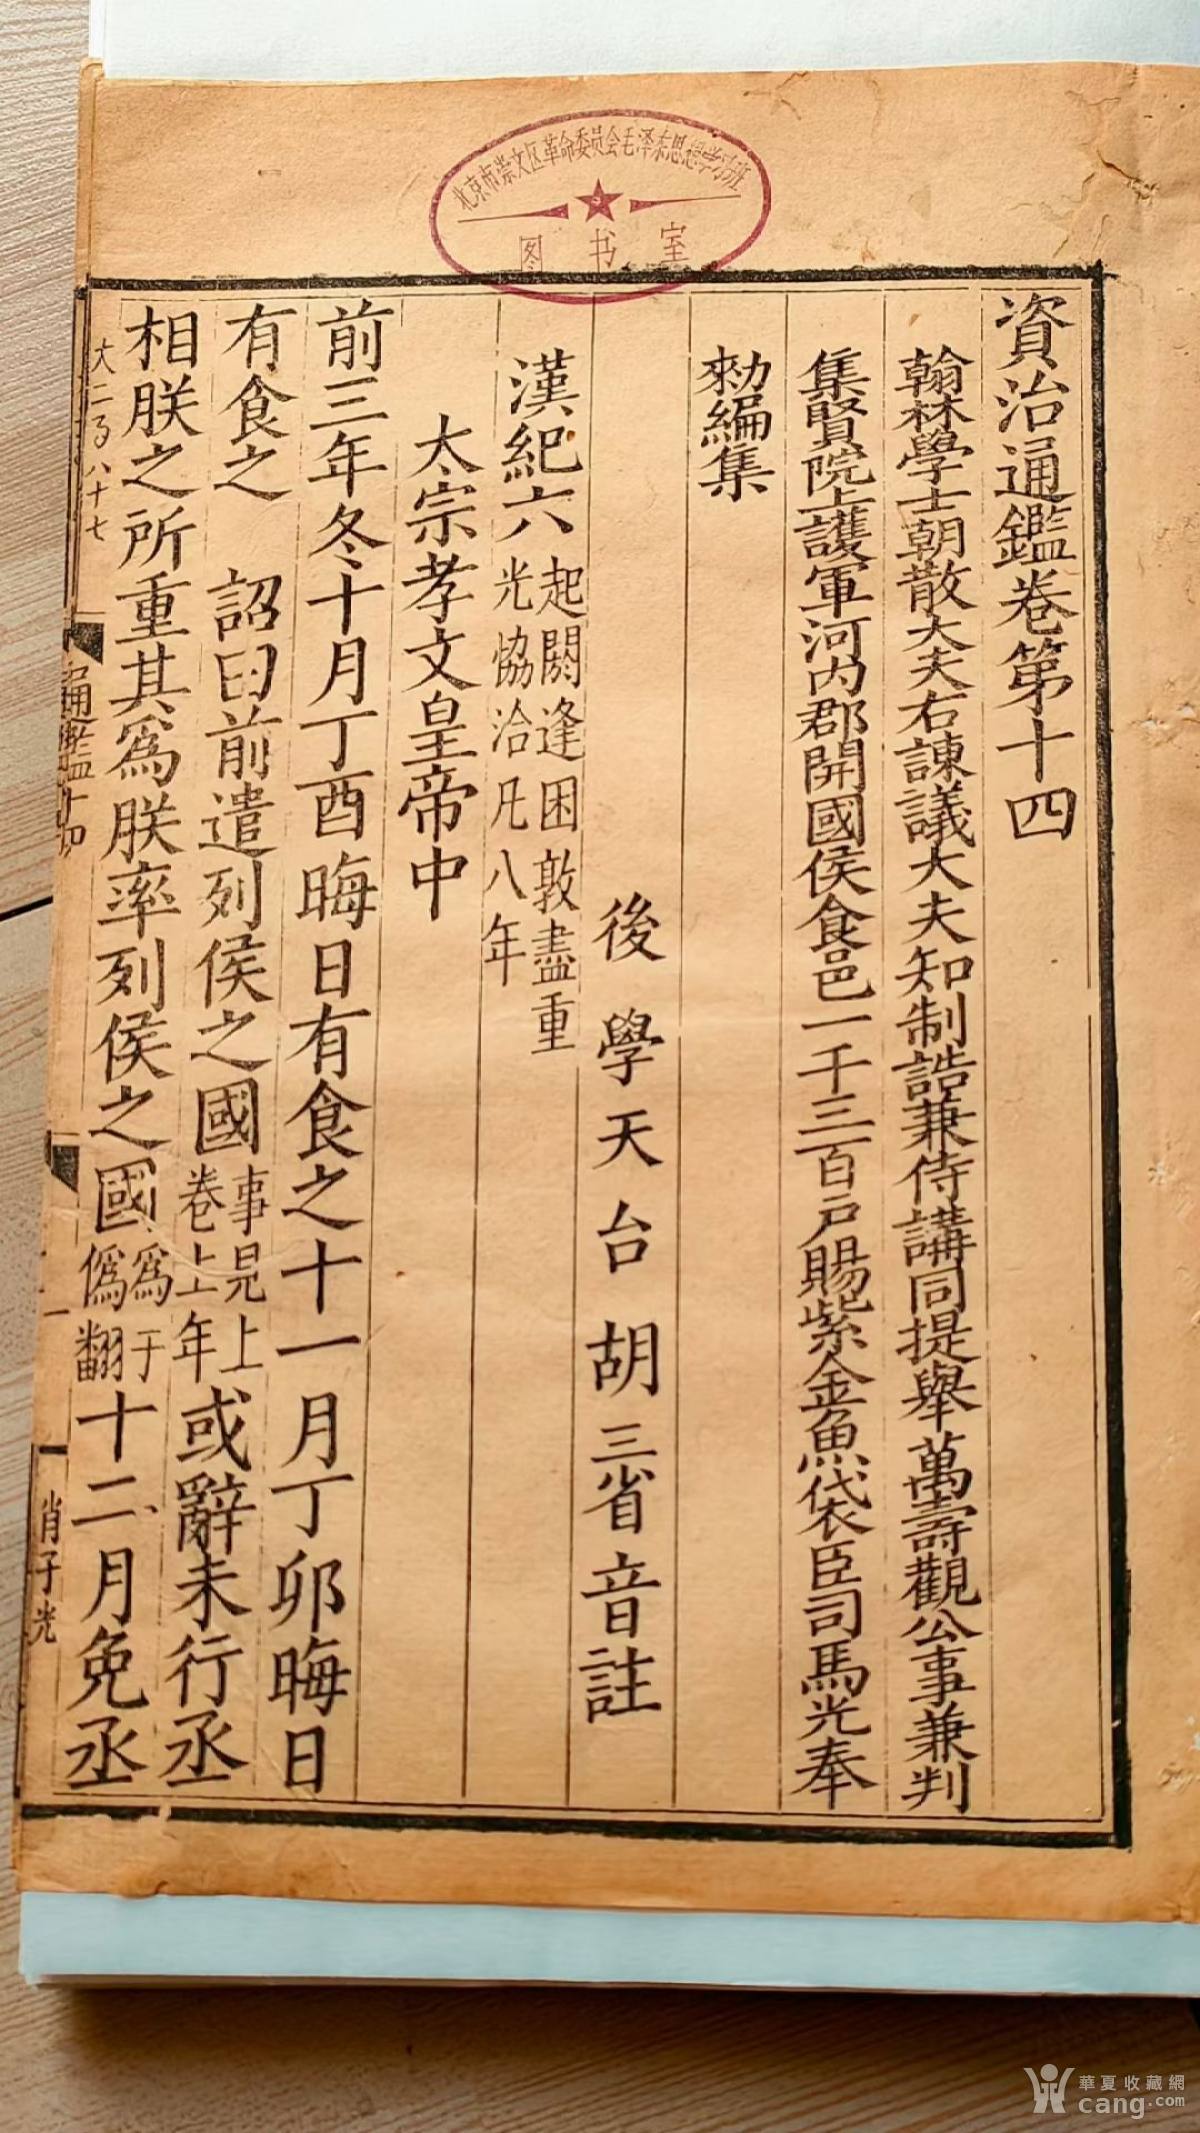 北京市崇文区革命委员会毛泽东思想学习班
图书室
資治通鑑卷第十四
翰林學士朝散大夫右諫議大夫知制誥兼侍講同提舉萬壽觀公事兼判
集賢院上護軍河内郡開國侯食邑一千三百户賜紫金魚袋臣司馬光奉
勑編集
後學天台胡三省音註
漢紀六起閼逢困敦盡重
光協洽凡八年
太宗孝文皇帝中
前三年冬十月丁酉晦日有食之十一月丁卯晦日
有食之 詔曰前遣列侯之國事見上
卷上年或辭未行丞
相朕之所重其爲朕率列侯之國爲于
僞翻十二月免丞
大二百八十七
通鑑十四
一
肖子光
華夏收藏網
cang.com